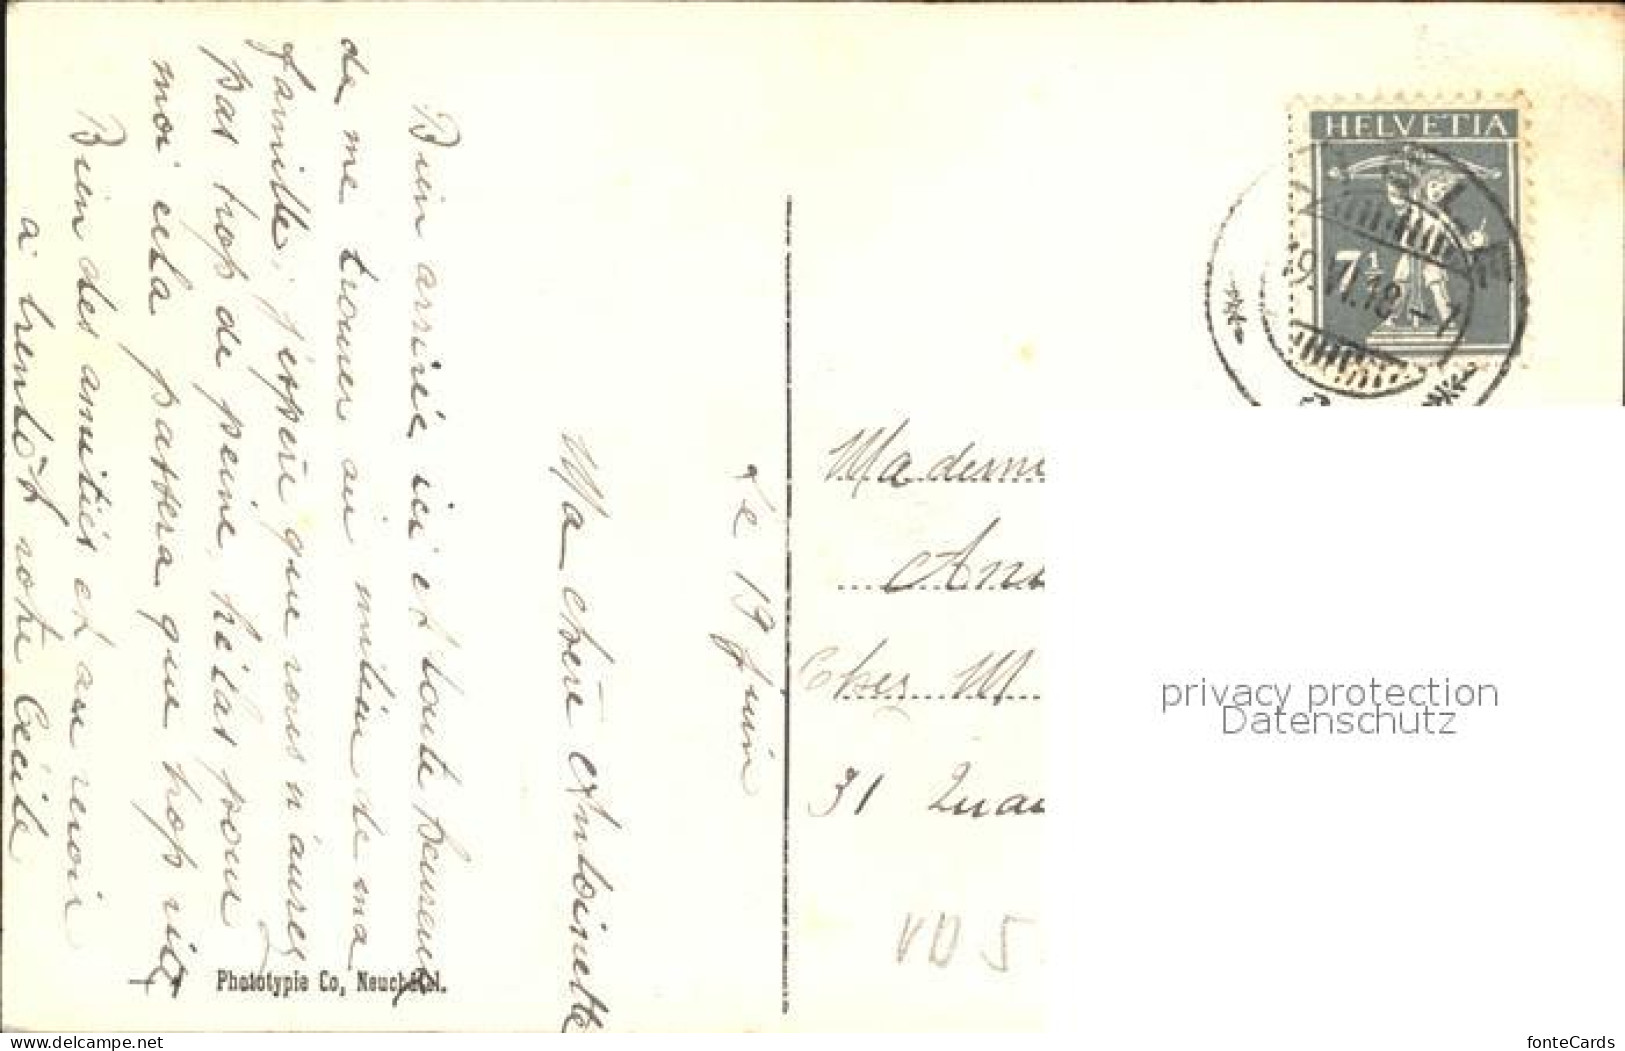 le 19 juin
Ma chère Antoinette
Bien arrivée ici et toute heureuse
de me trouver au milieu de ma
famille; j'espère que vous n'aurez
pas trop de peine, hélas pour
moi cela passera que trop vite
Bien des amitiés et au revoir
à bientôt votre Cécile
Phototypie Co, Neuchâtel.
HELVETIA
7½
19.VI.18.-1
Mademo
Chez M
31
VD 5
privacy protection
Datenschutz
www.delcampe.net
fonteCards